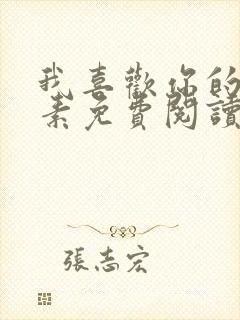 我喜歡你的
素免費閱讀
張志宏